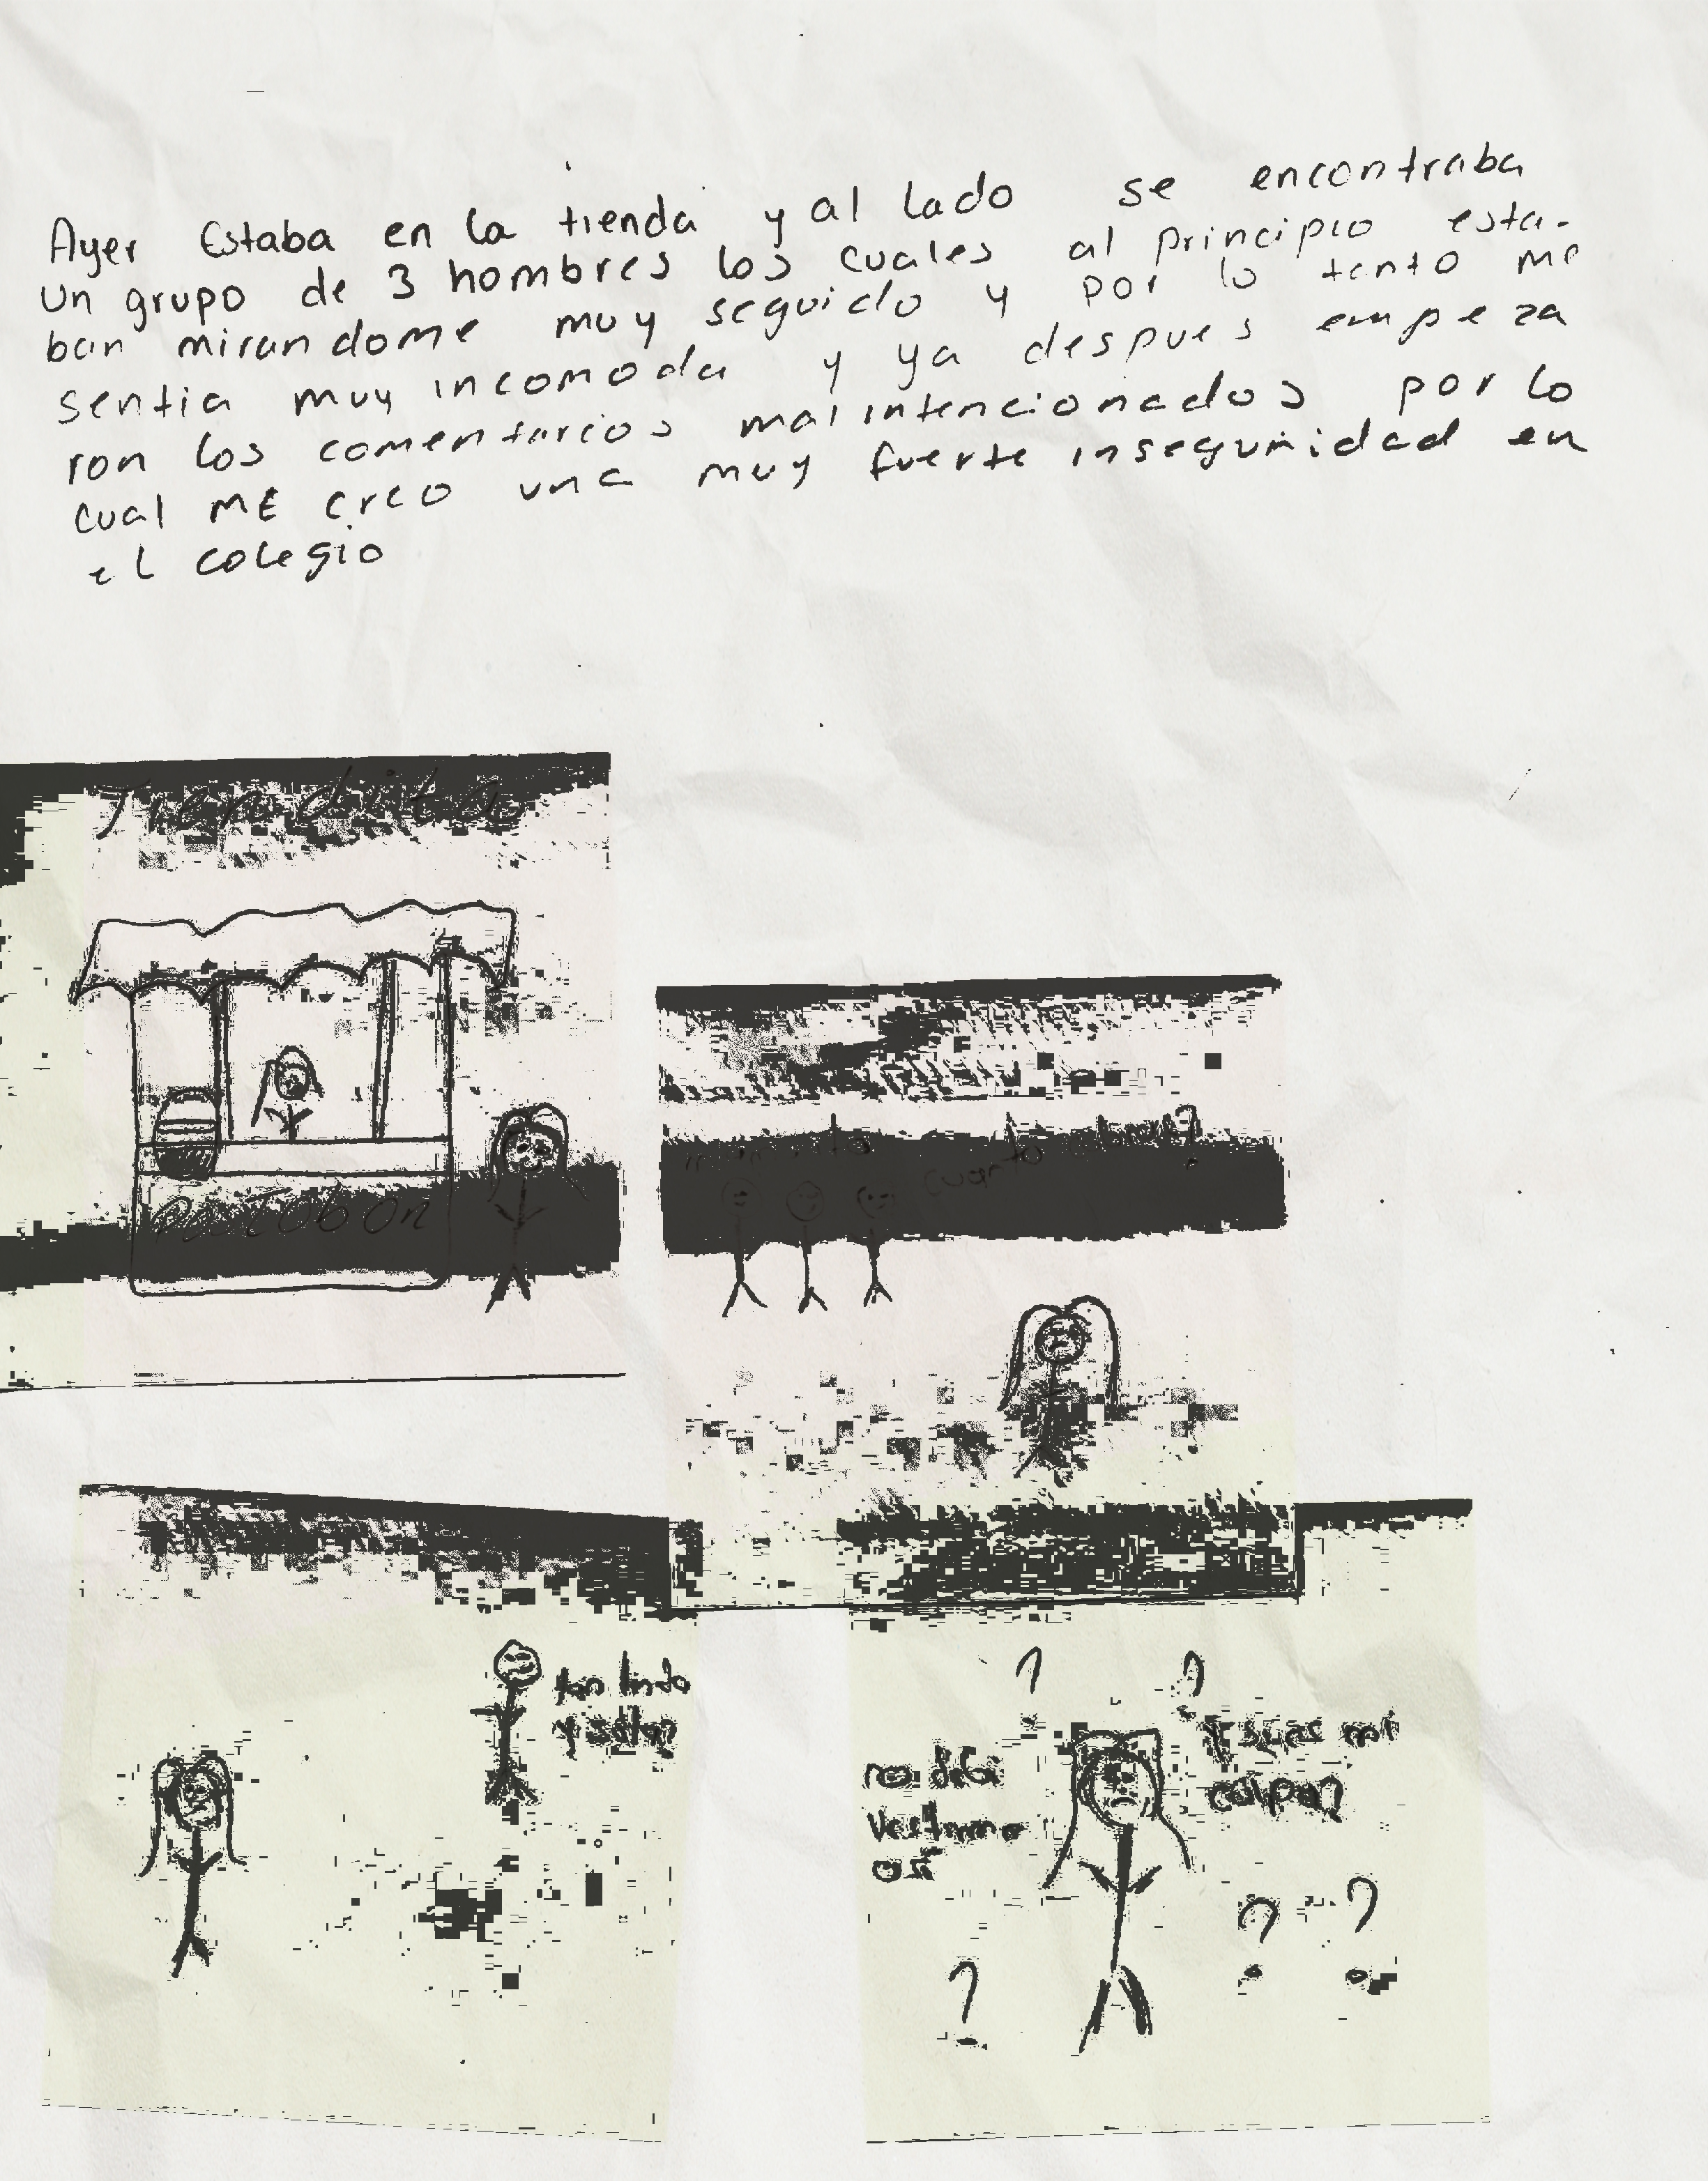 Ayer Estaba en la tienda y al lado se encontraba
un grupo de 3 hombres los cuales al principio esta-
ban mirandome muy seguido y por lo tanto me
sentia muy incomoda y ya despues empeza
ron los comentarios mal intencionados por lo
cual ME creo una muy fuerte inseguridad en
el colegio
Tiendita
Postobon
cuanto
tan linda
y solita?
no debi
vestirme
así
Y si fue mi
culpa?
? ? ? ? ?